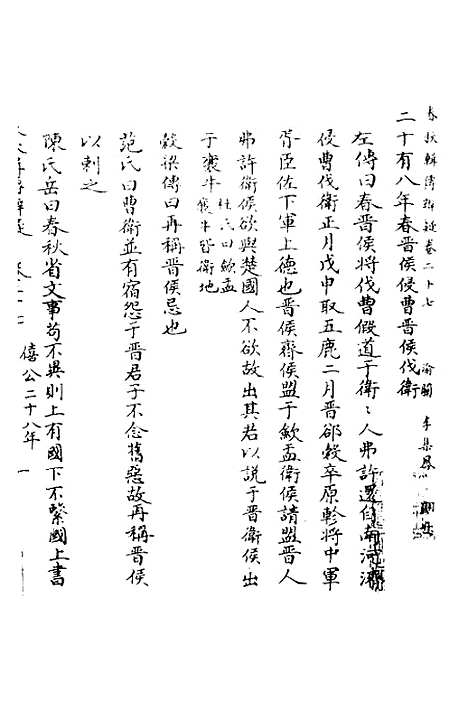 春秋輯傳辨疑卷二十七　渝關　李集鳳
二十有八年春晋侯侵曹晋侯伐衛
左傳曰春晋侯將伐曹假道于衛〻人弗許還自南河濟
侵曹伐衛正月戊申取五鹿二月晋郤縠卒原軫將中軍
胥臣佐下軍上德也晋侯齊侯盟于歛盂衛侯請盟晋人
弗許衛侯欲與楚國人不欲故出其君以說于晋衛侯出
于襄牛杜氏曰歛盂襄牛皆衛地
穀梁傳曰再稱晋侯忌也
范氏曰曹衛並有宿怨于晋君子不念舊惡故再稱晋侯
以刺之
陳氏岳曰春秋省文事苟不異則上有國下不繫國上書
僖公二十八年　一